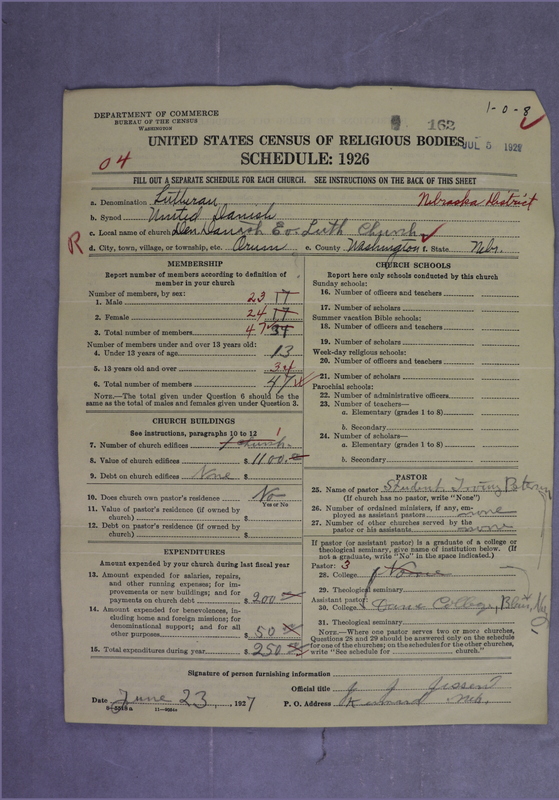 1-0-8
DEPARTMENT OF COMMERCE
BUREAU OF THE CENSUS
WASHINGTON
162
UNITED STATES CENSUS OF RELIGIOUS BODIES
JUL 5 1927
04
SCHEDULE: 1926
FILL OUT A SEPARATE SCHEDULE FOR EACH CHURCH. SEE INSTRUCTIONS ON THE BACK OF THIS SHEET
a. Denomination Lutheran
Nebraska District
b. Synod United Danish
c. Local name of church Den Danish Ev. Luth Church
R
d. City, town, village, or township, etc. Orum e. County Washington f. State Nebr.
MEMBERSHIP
Report number of members according to definition of
member in your church
Number of members, by sex:
1. Male 23 17
2. Female 24 17
3. Total number of members 47 34
Number of members under and over 13 years old:
4. Under 13 years of age 13
5. 13 years old and over 34
6. Total number of members 47
NOTE.—The total given under Question 6 should be the
same as the total of males and females given under Question 3.
CHURCH BUILDINGS
See instructions, paragraphs 10 to 12
7. Number of church edifices 1 church. 1
8. Value of church edifices $ 1100.00
9. Debt on church edifices None $
10. Does church own pastor's residence No
Yes or No
11. Value of pastor's residence (if owned by
church) $
12. Debt on pastor's residence (if owned by
church) $
EXPENDITURES
Amount expended by your church during last fiscal year
13. Amount expended for salaries, repairs,
and other running expenses; for im-
provements or new buildings; and for
payments on church debt $ 200
14. Amount expended for benevolences, in-
cluding home and foreign missions; for
denominational support; and for all
other purposes $ 50
15. Total expenditures during year $ 250
CHURCH SCHOOLS
Report here only schools conducted by this church
Sunday schools:
16. Number of officers and teachers
17. Number of scholars
Summer vacation Bible schools:
18. Number of officers and teachers
19. Number of scholars
Week-day religious schools:
20. Number of officers and teachers
21. Number of scholars
Parochial schools:
22. Number of administrative officers
23. Number of teachers—
a. Elementary (grades 1 to 8)
b. Secondary
24. Number of scholars—
a. Elementary (grades 1 to 8)
b. Secondary
PASTOR
25. Name of pastor Student Irving
(If church has no pastor, write "None")
26. Number of ordained ministers, if any, em-
ployed as assistant pastors none
27. Number of other churches served by the
pastor or his assistants none
If pastor (or assistant pastor) is a graduate of a college or
theological seminary, give name of institution below. (If
not a graduate, write "No" in the space indicated.)
Pastor: 3
28. College None
29. Theological seminary
Assistant pastor:
30. College Dana College, Blair,
31. Theological seminary
NOTE.—Where one pastor serves two or more churches,
Questions 28 and 29 should be answered only on the schedule
for one of the churches; on the schedules for the other churches,
write "See schedule for church."
Signature of person furnishing information
Official title J Jessen
Date June 23, 1927
P. O. Address Kennard Neb.